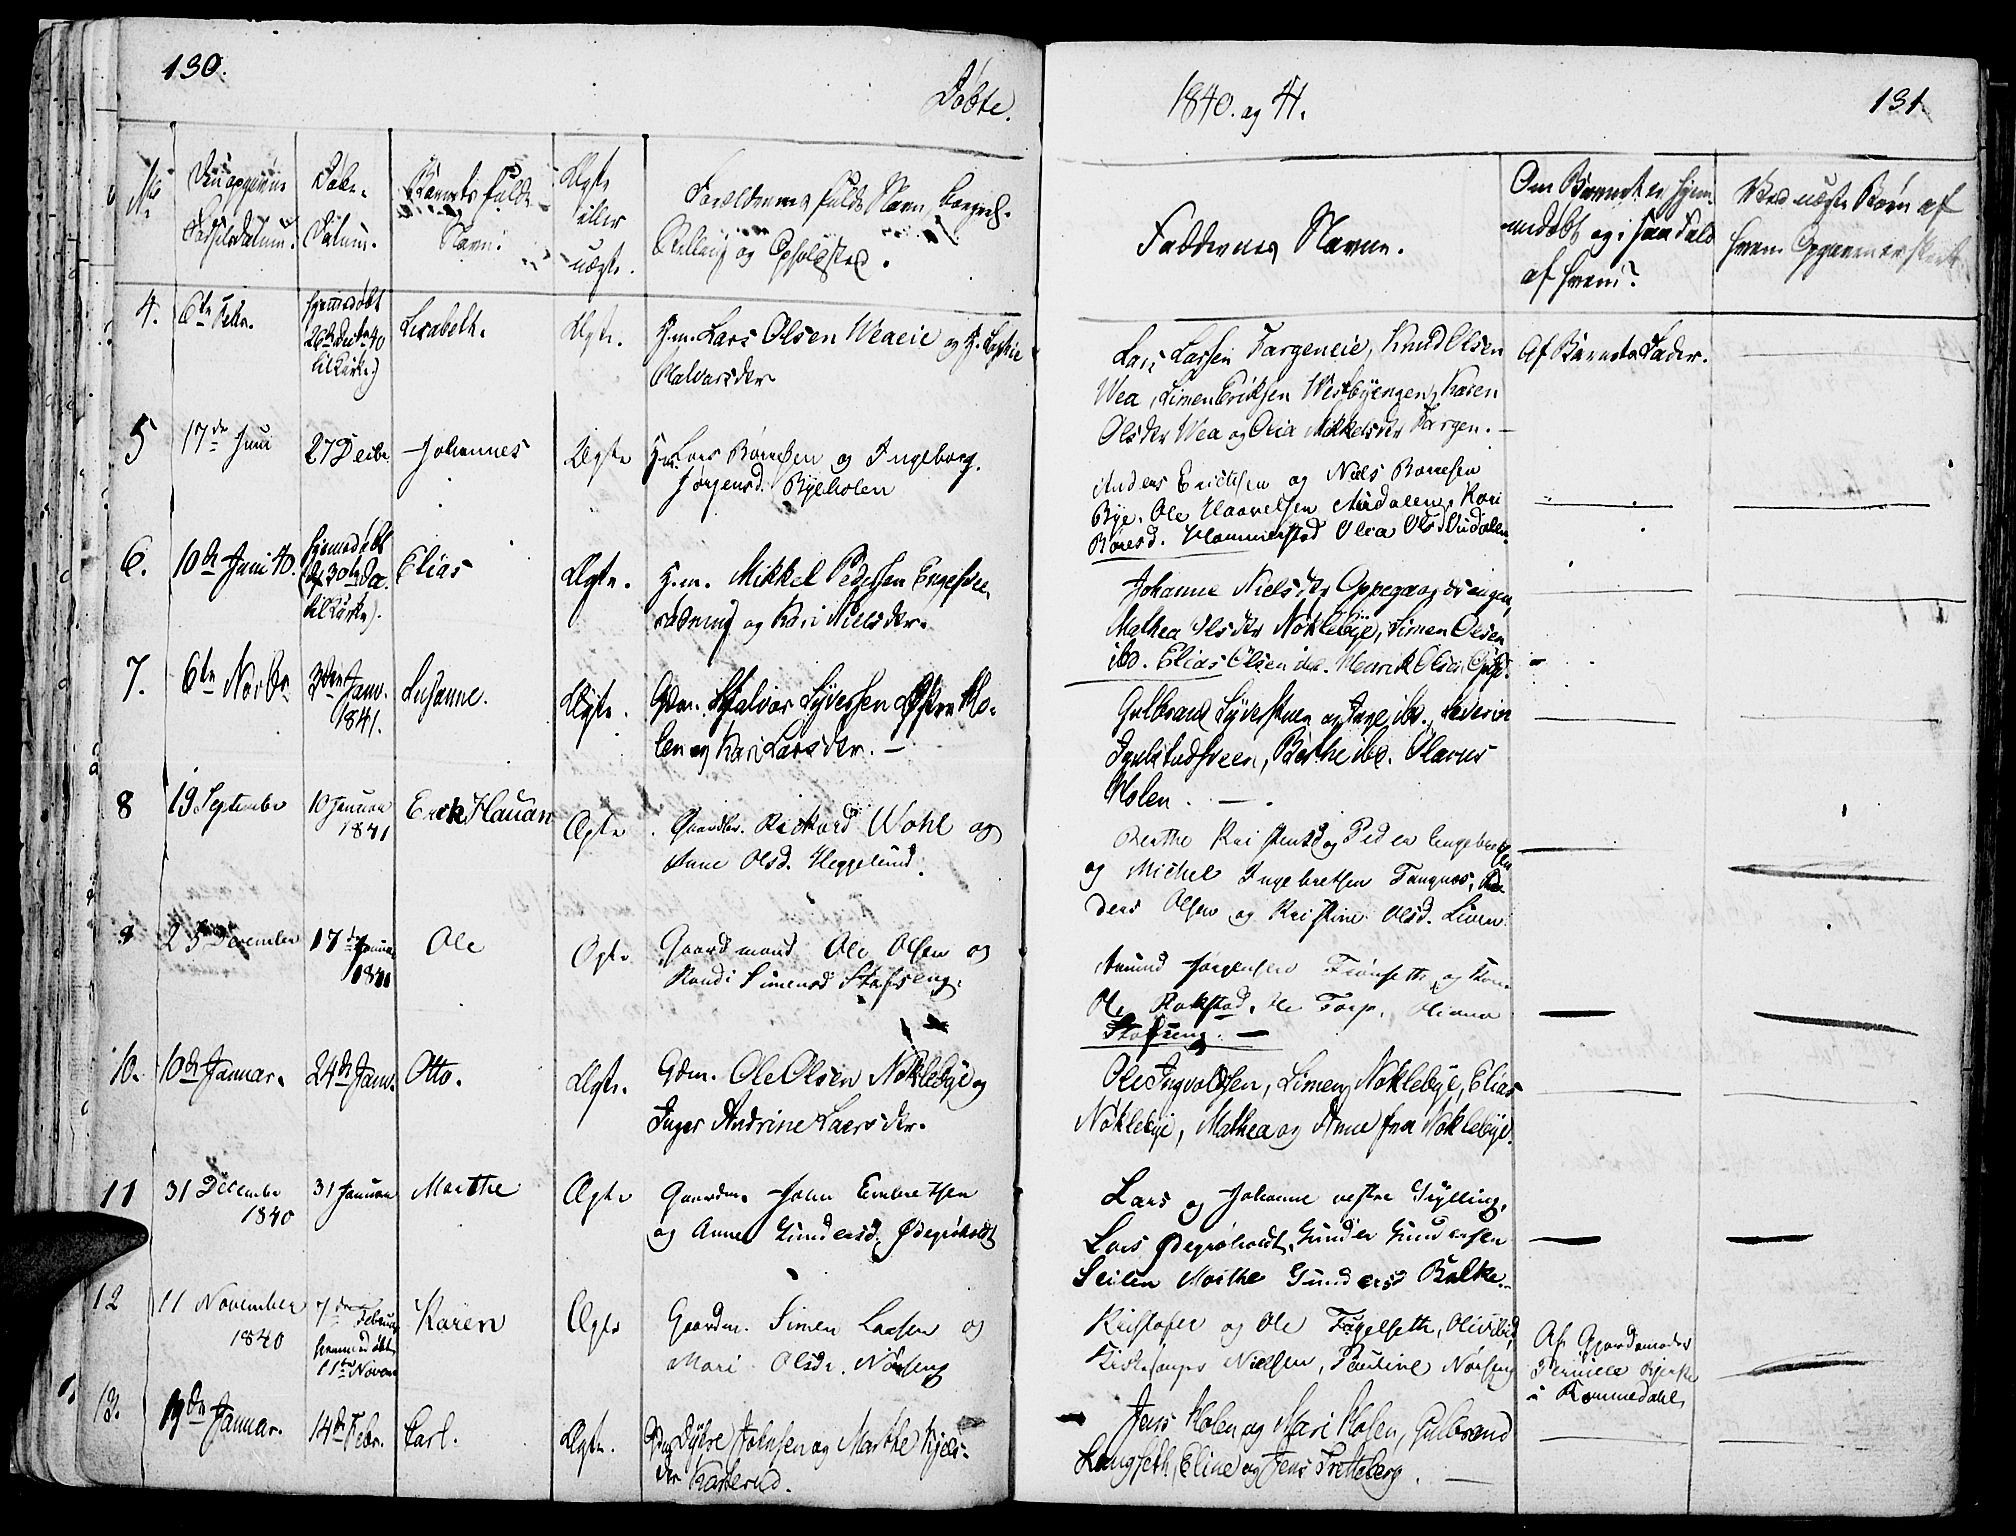 130.
Døbte.
1840. og 41.
131
No.
Den opgivne
Fødselsdatum.
Døbe-
Datum.
Barnets fulde
Navn.
Ægte
eller
uægte.
Forældrenes fulde Navn, borgerl.
Stilling og Opholdsted.
Faddernes Navne.
Om Barnet er hjem-
medøbt og i saa Fald
af hvem?
Ved uægte Børn af
hvem Opgaven er skeet
4.
6te Febr.
hjemmedøbt
26de 40
til Kirke)
Lisabeth.
Ægte.
H.m. Lars Olsen Weaeie og H.
Halvorsdtr
Lars Larsen Fargeneie, Knud Olsen
Wea, Simen Eriksen Westbyengen, Karen
Olsdtr Wea og Olia Mikkelsdtr Fargen.
Af Barnets Fader.
5
17de Juni
27 Decbr
Johannes
Ægte
Hm. Lars Børresen og Ingeborg
Jørgensd. Byeholen
Anders Erichsen og Niels Børresen
Bye, Ole Haavelsen Kari
Børesd. Hammerstad Olea Olsd
6.
10de Juni 40.
hjemmedøbt
30te
til Kirke).
Elias
Ægte.
H.m. Mikkel Pedersen
og Kari Nielsdtr.
Johanne Nielsdtr Oppegaardsengen,
Mathea Olsdtr Nøklebye, Simen Olsen
ibd. Elias Olsen ibd. Henrik Olsen
7.
6te Novbr
3die Janv.
1841.
Susanne.
Ægte.
Gdm. Halvor Syversen Østre Ho-
len og Kari Larsdtr.
Gulbrand og Inge ibd., Severin
Berthe ibd. Olaves
Holen.
8
19. September
10 Januar
1841
Erik Hauan
Ægte
Gaardbr. Richard Wohl og
Anne Olsd. Heggelund.
Berthe Kristensd og Peder Engebretsen
og Michel Ingebretsen Tangnes,
Olsen og Kristine Olsd. Lien
9
25 December
17de Januar
1841
Ole
Ægte
Gaardmand Ole Olsen og
Randi Simensd Stafseng.
Amund Jørgensen og
Ole Rokstad, Ole Torp, Oliana
Stafseng.
10.
10de Januar.
24de Janv.
Otto.
Ægte.
Gdm. Ole Olsen Nøklebye og
Inger Andrine Larsdtr.
Ole Ingvoldsen, Simen Nøklebye, Elias
Nøklebye, Mathea og Anne fra Nøklebye.
11
31 December
1840
31 Januar
Marthe
Ægte
Gaardm. John Embretsen
og Anne Gundersd. Ødegrøholdt
Lars og Johanne vestre Gylling,
Lars Ødegrøholdt, Gunder Gundersen
Seilen Marthe Gundersd Balke.
12
11 November
1840
7de Februar
hjemmedøbt
11te Novem
Karen
Ægte
Gaardm. Simen Larsen og
Mari Olsdr. Nørseng
Kristofer og Ole Fagelseth, Olive ibid,
Kirkesanger Nielsen, Pauline Nørseng
Af Gjordemoder
Pernille Bjerke
i Rommedahl
13.
19de Januar.
14de Febr.
Carl.
Ægte.
Johnsen og Marthe Kjels-
dtr Karterud.
Jens Holen og Mari Holen, Gulbrand
Langseth, Eline og Jens Pretteberg.